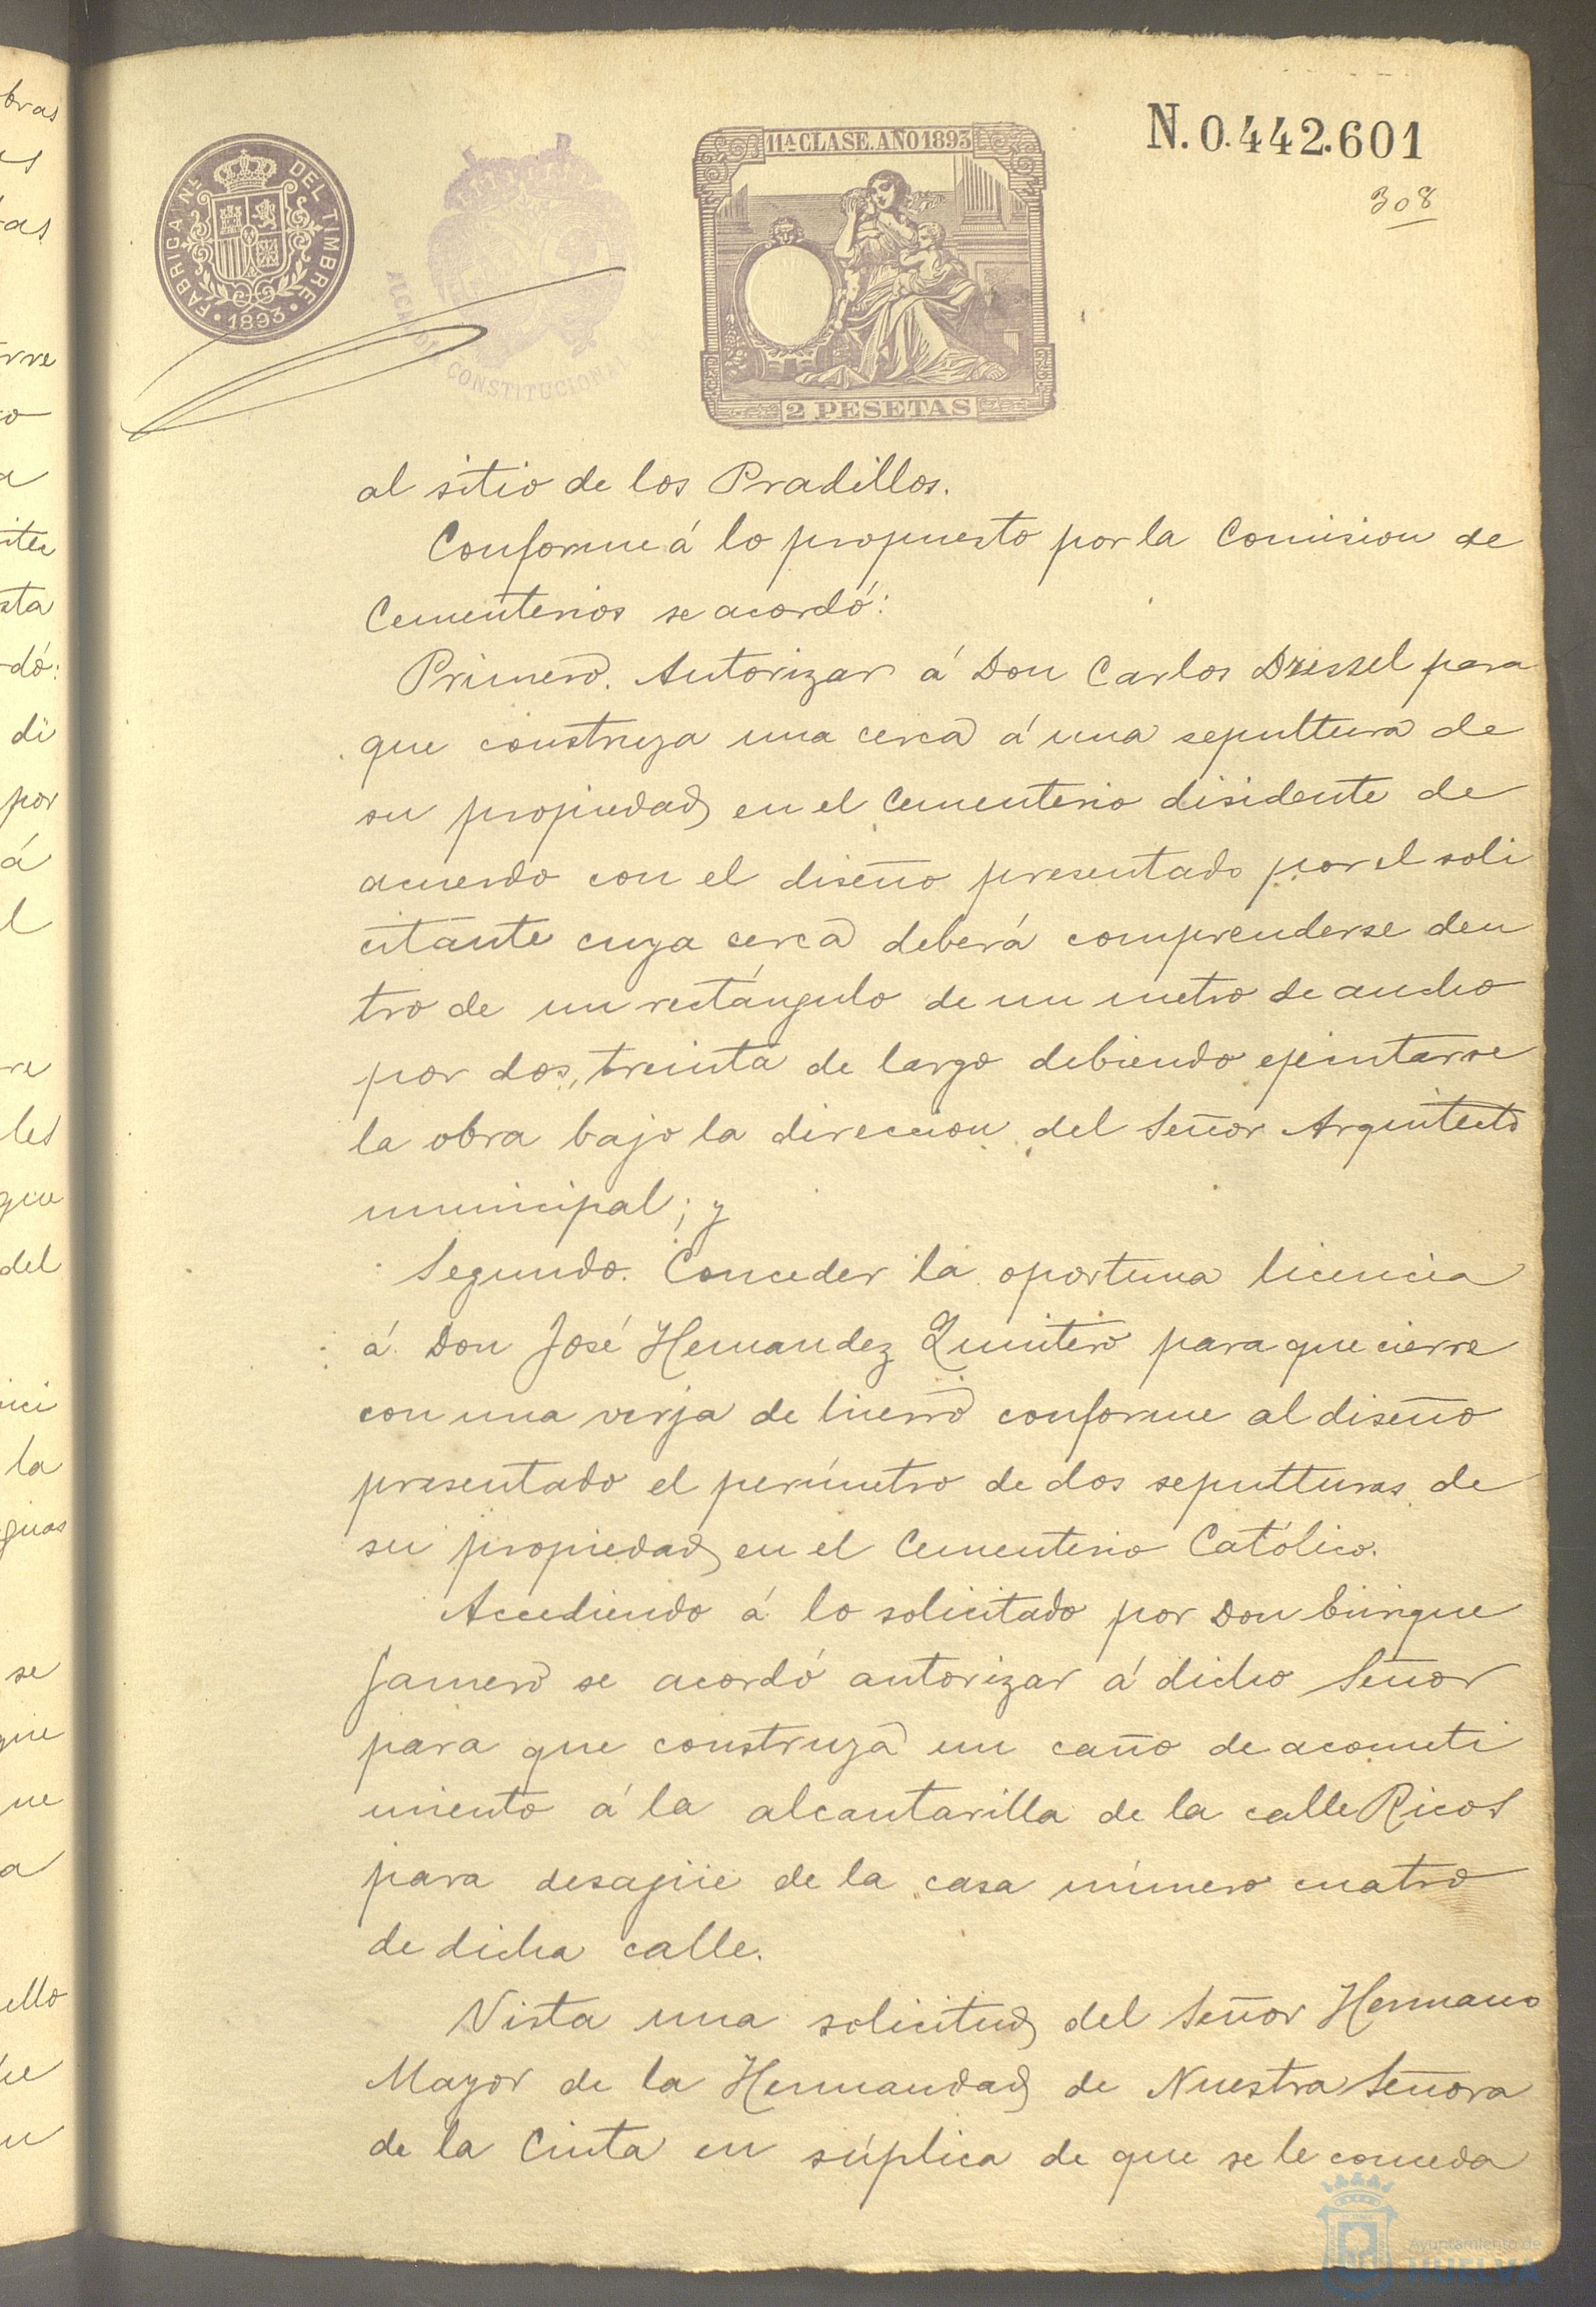 N. 0.442.601
308
FABRICA NL DEL TIMBRE
1893
ALCALDIA CONSTITUCIONAL
11A CLASE. AÑO 1893
2 PESETAS
al sitio de los Pradillos.
Conforme á lo propuesto por la Comision de
Cementerios se acordó:
Primero. Autorizar á Don Carlos Dressel para
que construya una cerca á una sepultura de
su propiedad en el Cementerio disidente de
acuerdo con el diseño presentado por el soli
citante cuya cerca deberá comprenderse den
tro de un rectángulo de un metro de ancho
por dos, treinta de largo debiendo ejecutarse
la obra bajo la direccion del Señor Arquitecto
municipal; y
Segundo. Conceder la oportuna licencia
á Don José Hernandez Quintero para que cierre
con una verja de hierro conforme al diseño
presentado el perímetro de dos sepulturas de
su propiedad en el Cementerio Católico.
Accediendo á lo solicitado por Don Enrique
se acordó autorizar á dicho Señor
para que construya un caño de acometi
miento á la alcantarilla de la calle Ricos
para desagüe de la casa número cuatro
de dicha calle.
Vista una solicitud del Señor Hermano
Mayor de la Hermandad de Nuestra Señora
de la Cinta en súplica de que se le conceda
Ayuntamiento de
HUELVA